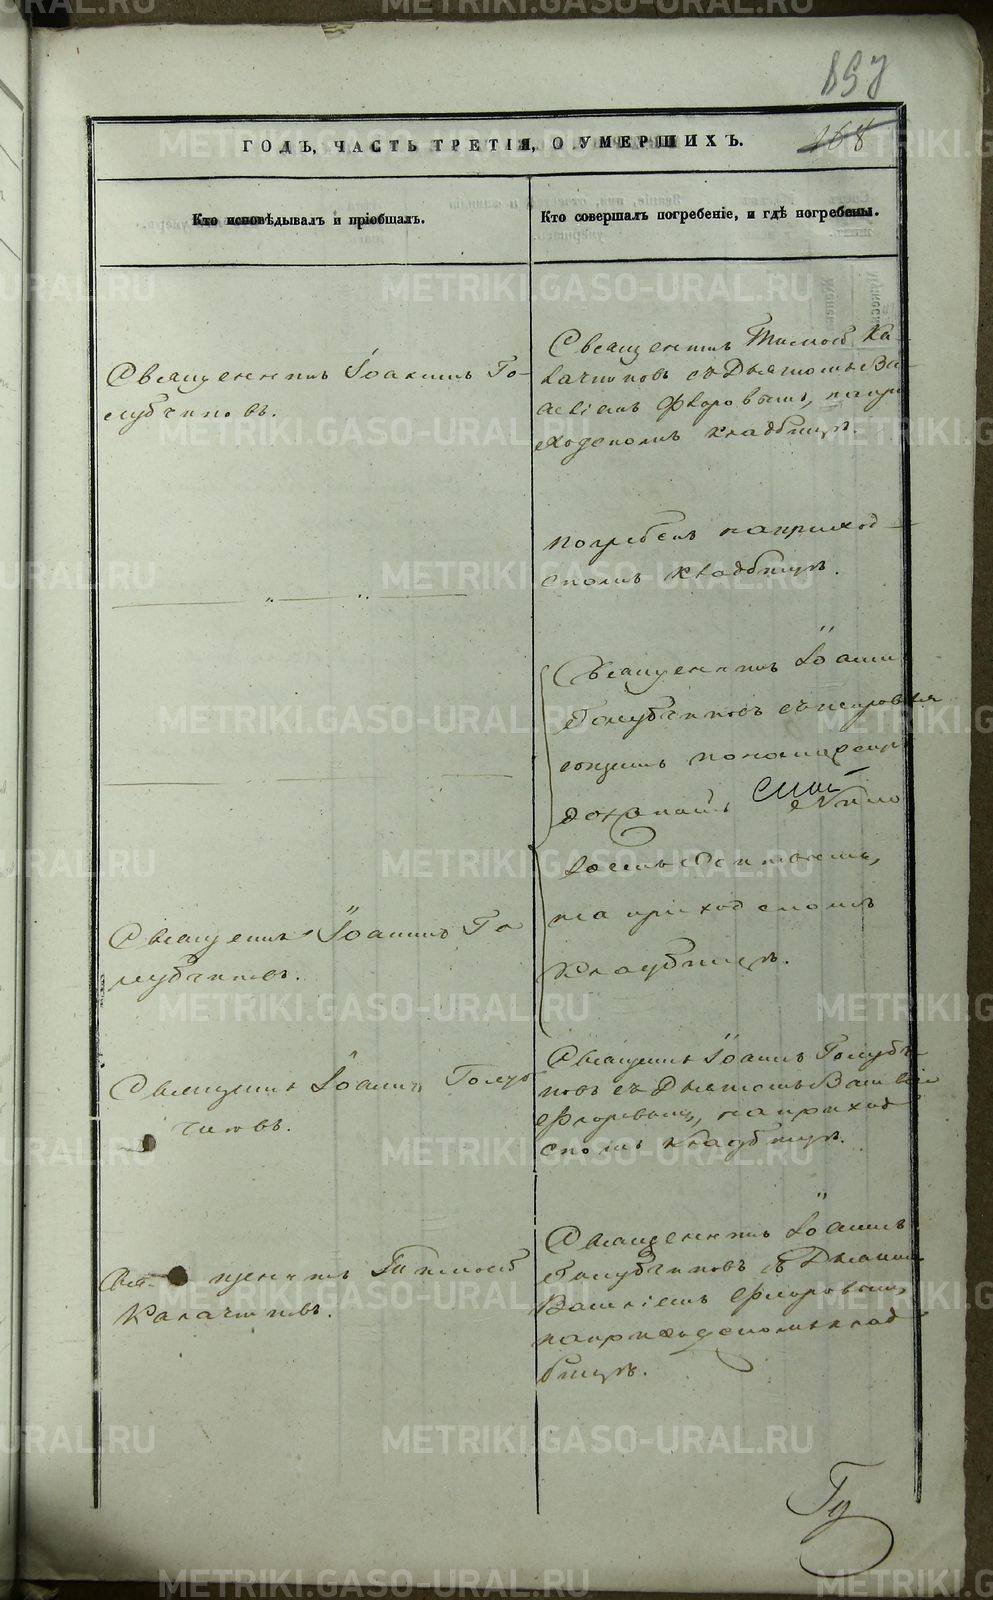 857
168
ГОДЪ, ЧАСТЬ ТРЕТІЯ, О УМЕРШИХЪ.
Кто исповѣдывалъ и пріобщалъ.
Кто совершалъ погребеніе, и гдѣ погребены.
Священникъ Іоаннъ Го-
лубчиковъ.
Священникъ Тимоѳ Ка-
лачиковъ съ Дьячкомъ Ва-
силіемъ Флоровымъ, на при
ходскомъ кладбищѣ.
погребенъ на приход-
скомъ кладбищѣ.
Священникъ Іоаннъ
Голубчиковъ съ исправля
ющимъ пономарскую
на приходскомъ
кладбищѣ.
Священникъ Іоаннъ Го
лубчиковъ.
Священникъ Іоаннъ Голуб
чиковъ.
Священникъ Іоаннъ Голубчи
ковъ съ Дьячкомъ Василіем
Флоровымъ, на приход
скомъ кладбищѣ.
Священникъ Тимоѳ
Калачиковъ.
Священникъ Іоаннъ
Голубчиковъ съ Дьячком
Василіемъ Флоровымъ,
на приходскомъ клад
бищѣ.
METRIKI.GASO-URAL.RU